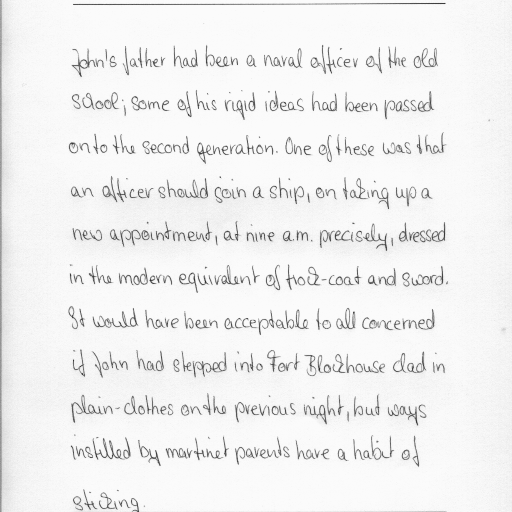 John's father had been a naval officer of the old
school; some of his rigid ideas had been passed
onto the second generation. One of these was that
an officer should join a ship, on taking up a
new appointment, at nine a.m. precisely, dressed
in the modern equivalent of frock-coat and sword.
It would have been acceptable to all concerned
if John had stepped into Fort Blockhouse clad in
plain-clothes on the previous night, but ways
instilled by martinet parents have a habit of
sticking.